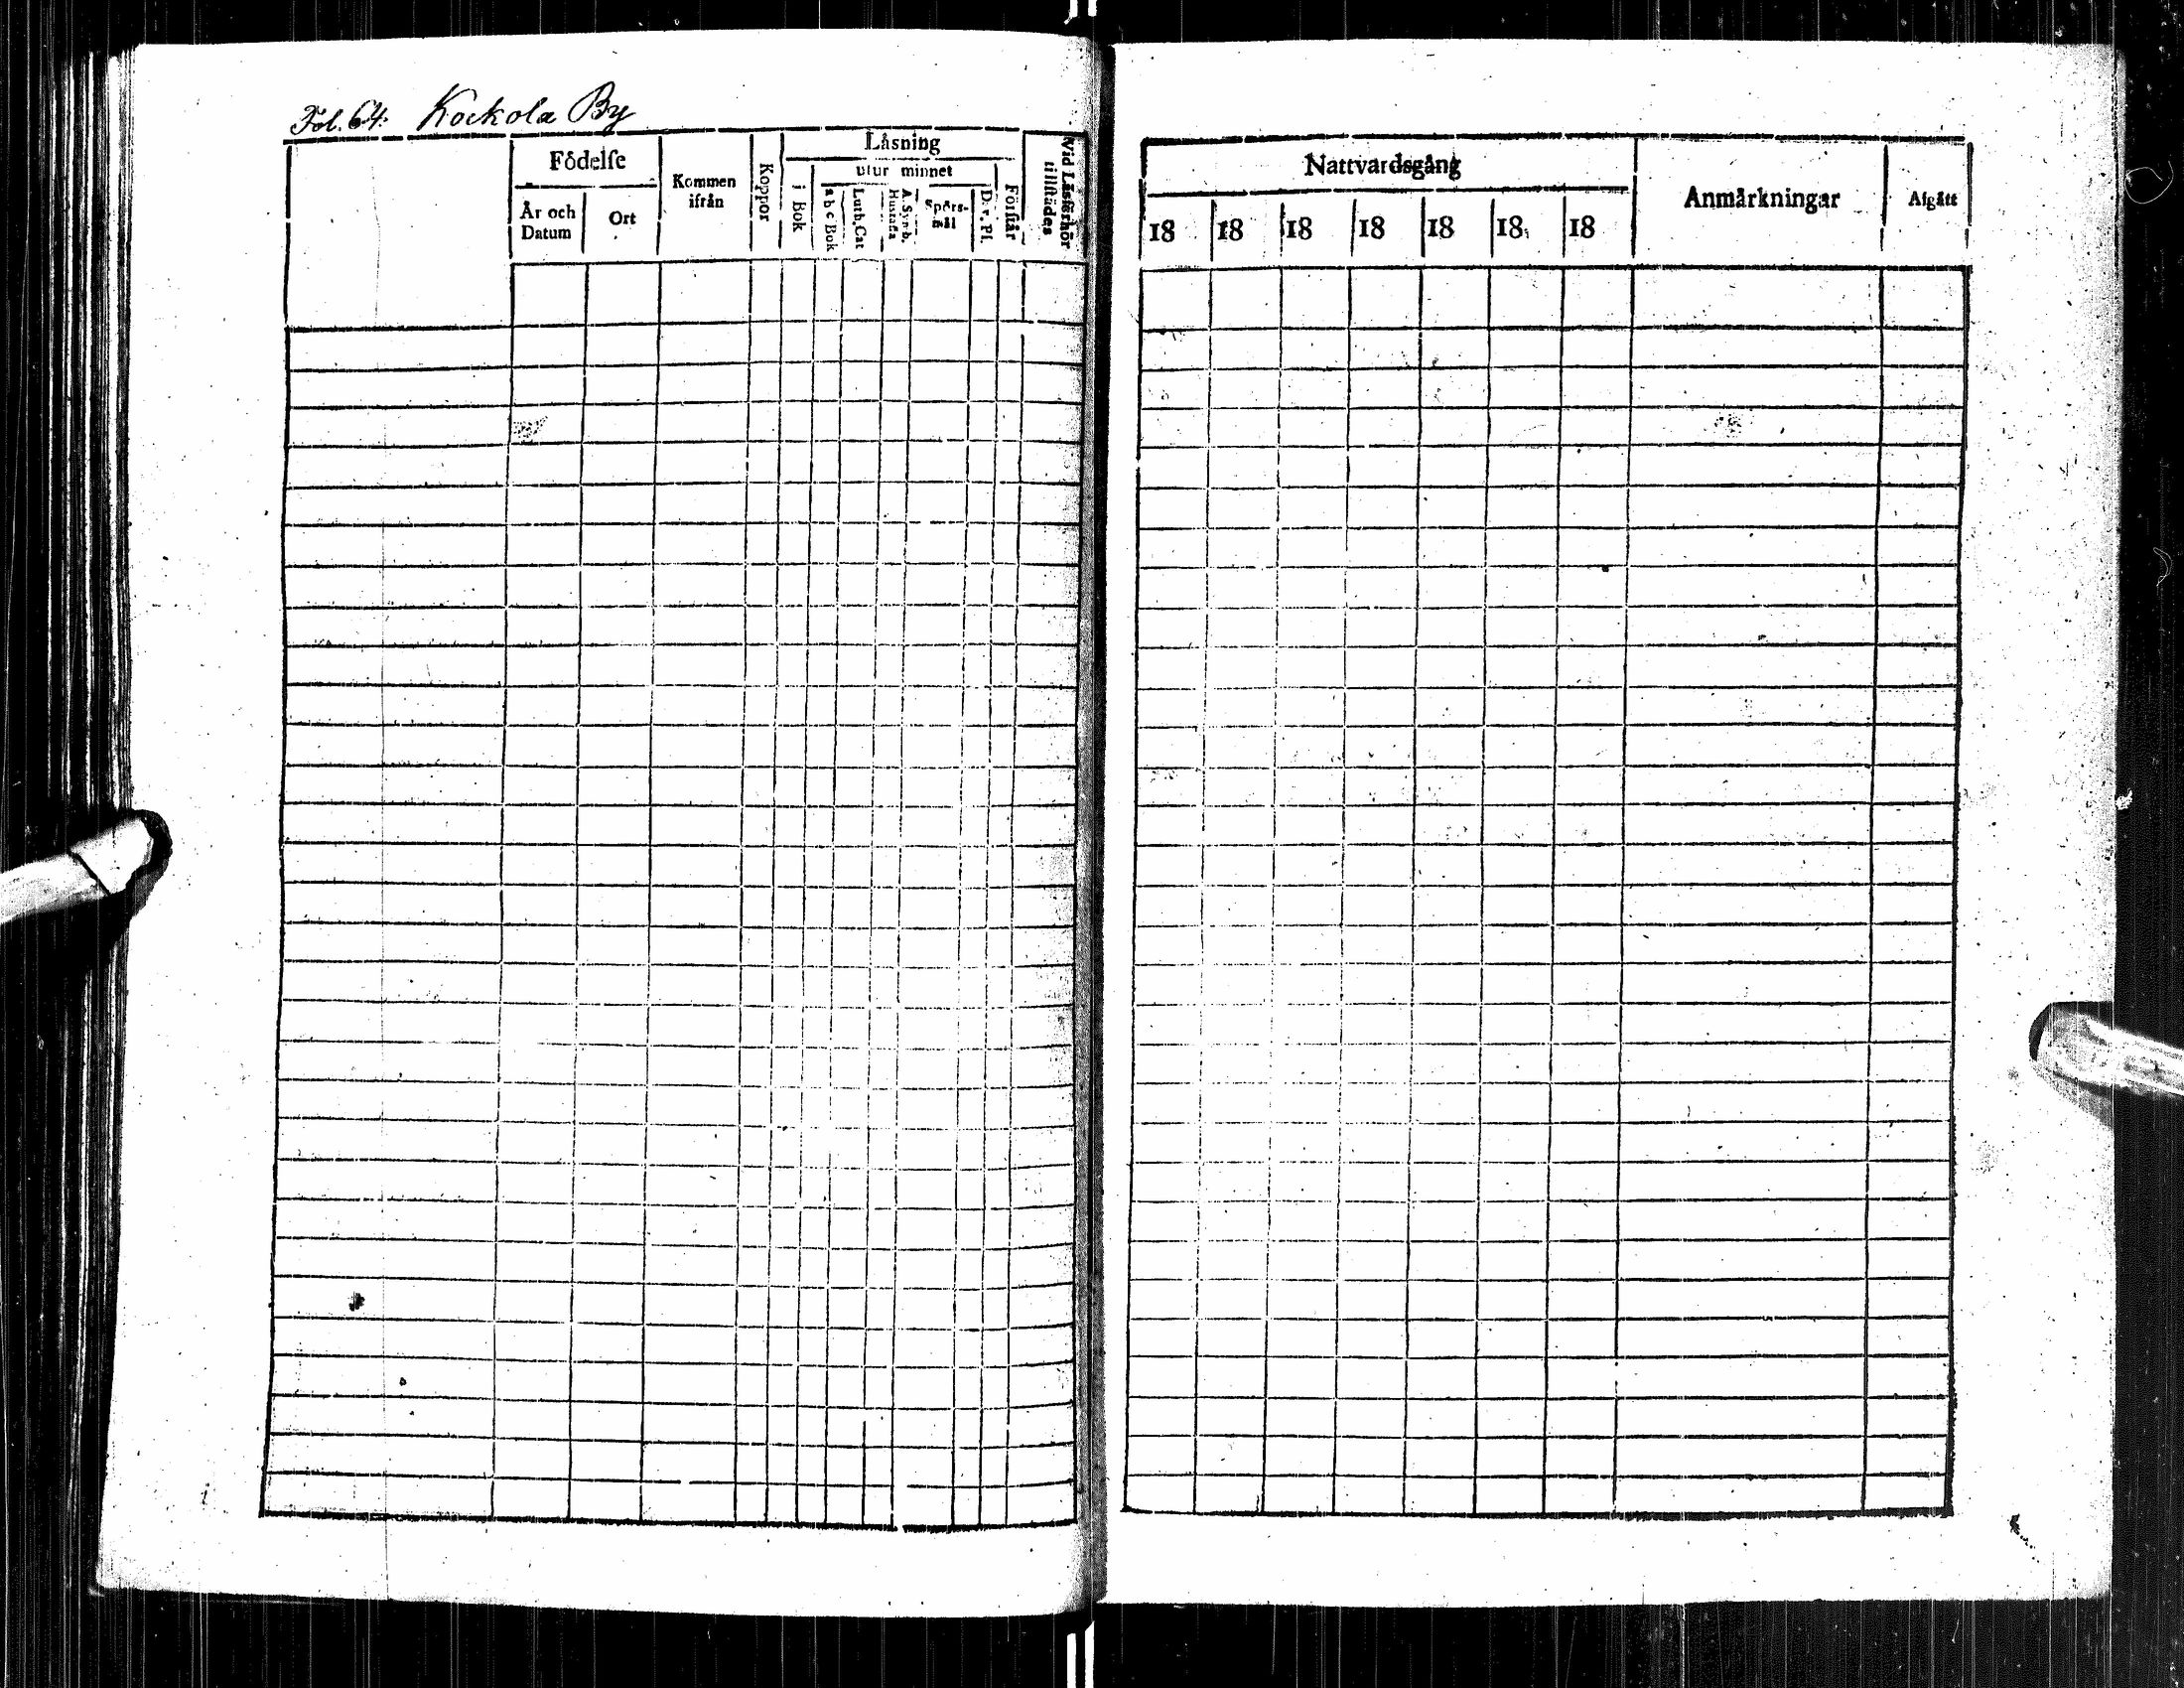 Fol. 64. Kockola By
Födelse
År och Datum
Ort
Kommen ifrån
Koppor
Läsning
i Bok
utur minnet
a b c Bok
Luth. Cat
A. Symb. Hustafla
Spörs-mål
D. v. Pſ.
Förſtår
Vid Läsförhör tillſtädes
Nattvardsgång
18 18 18 18 18 18 18
Anmärkningar
Afgått